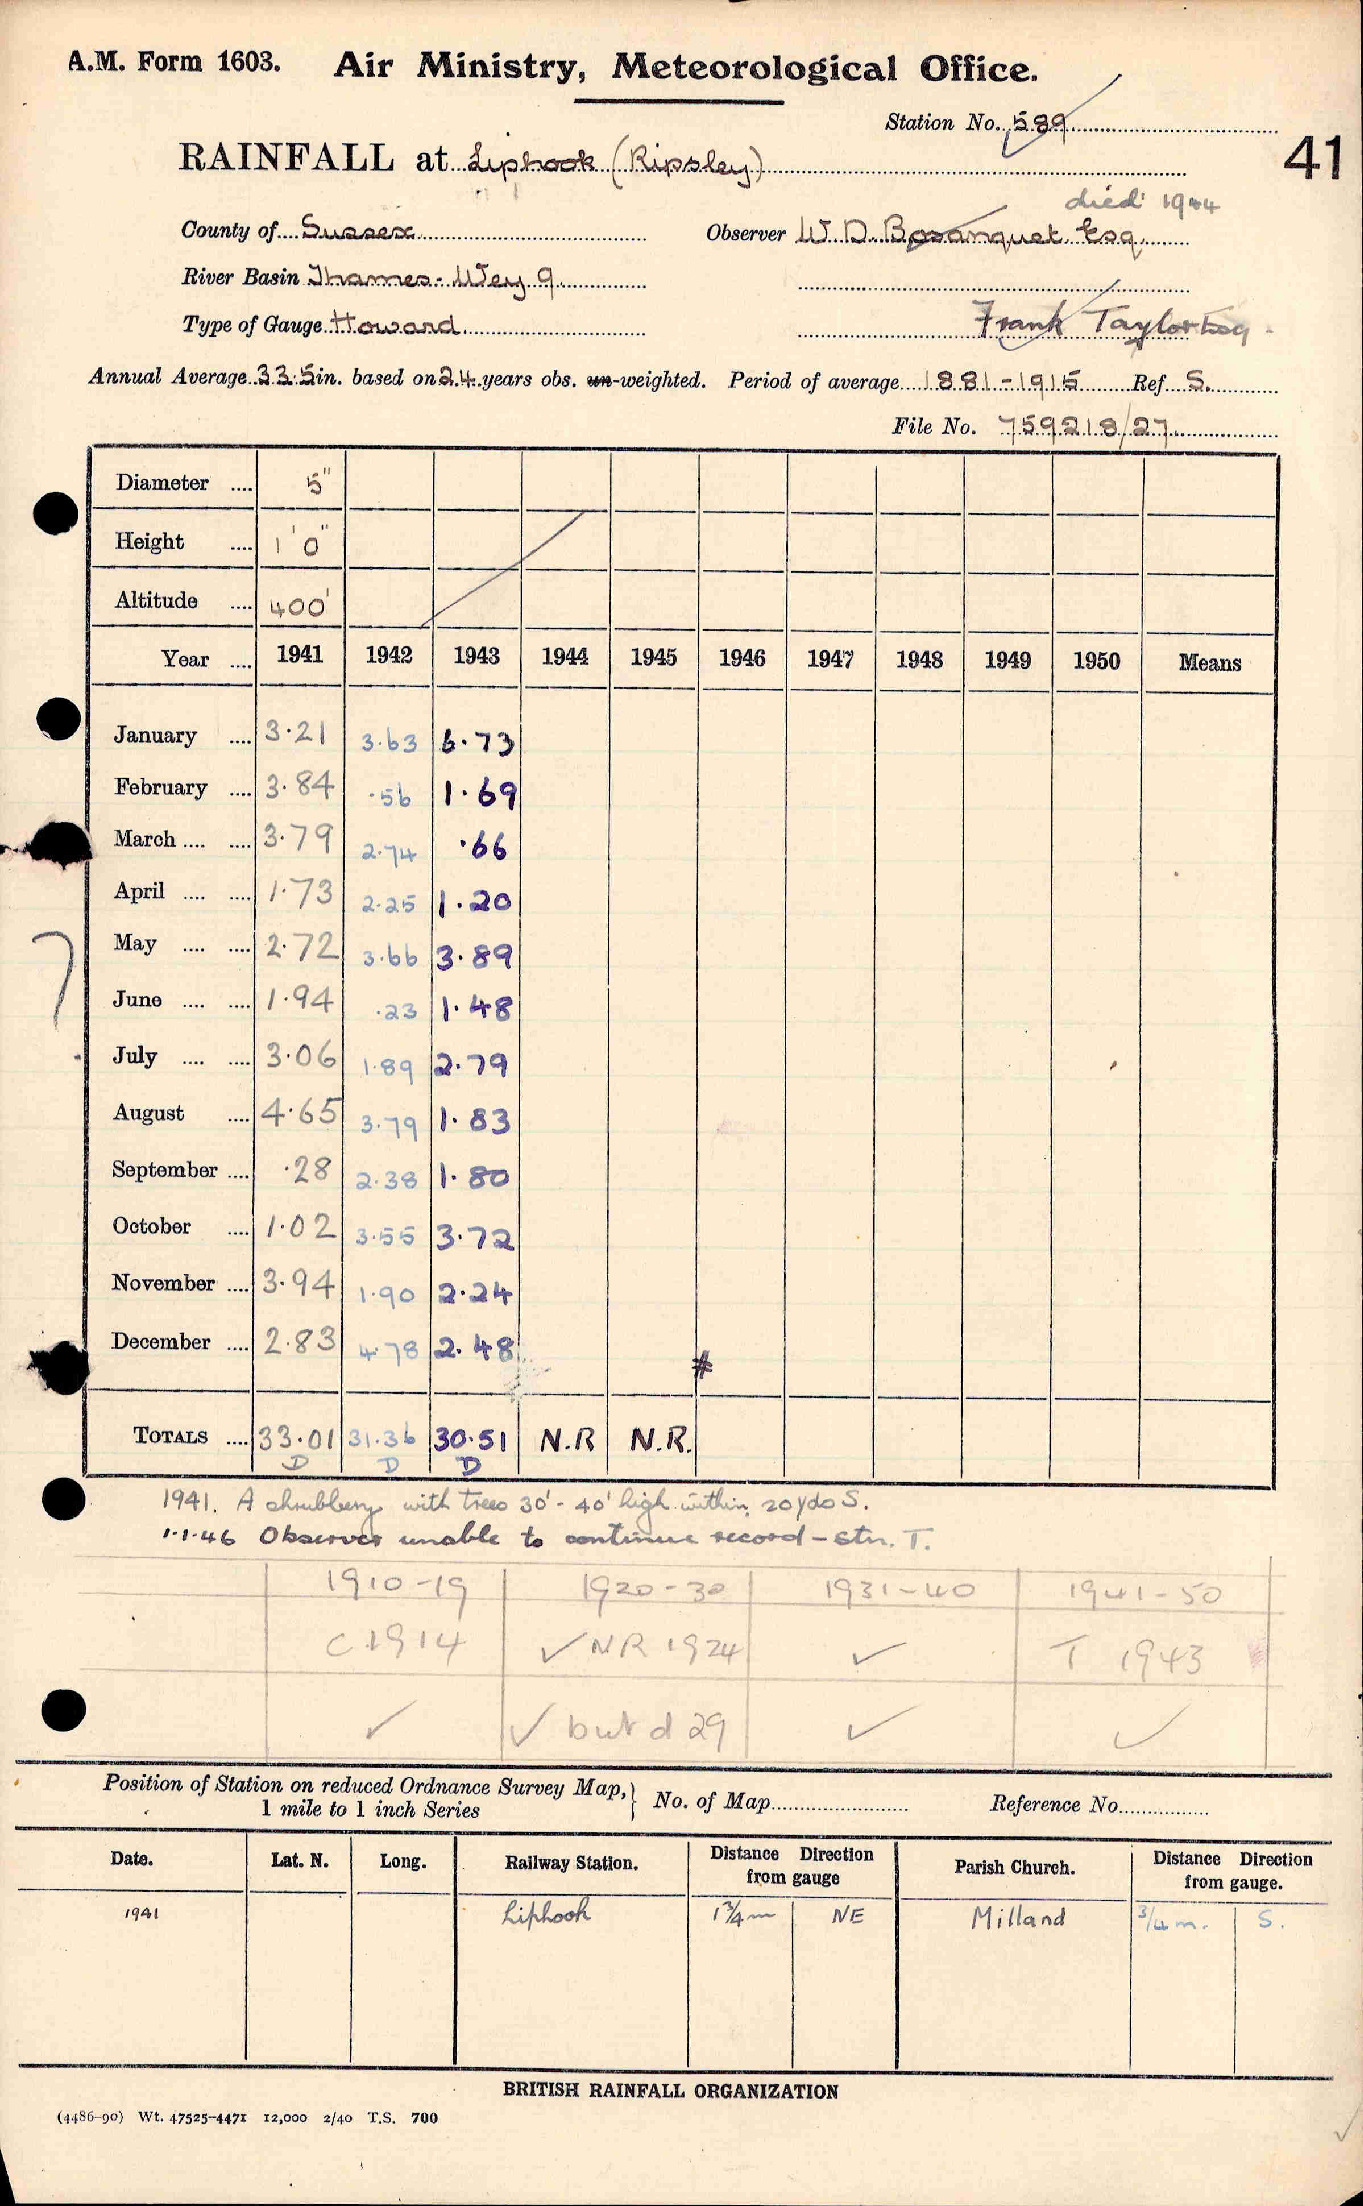 A.M. Form 1603. Air Ministry, Meteorological Office.
Station No. 589
41
RAINFALL at Liphook (Ripsley)
died 1944
County of Sussex Observer W D Bosanquet Esq
River Basin Thames-Wey 9
Type of Gauge Howard Frank Taylor Esq
Annual Average 33.5 in. based on 24 years obs. un-weighted. Period of average 1881-1915 Ref S.
File No. 759218/27
Diameter .... 5"
Height .... 1'0"
Altitude .... 400'
Year .... 1941 1942 1943 1944 1945 1946 1947 1948 1949 1950 Means
January .... 3.21 3.63 6.73
February .... 3.84 .56 1.69
March .... .... 3.79 2.74 .66
April .... .... 1.73 2.25 1.20
May .... .... 2.72 3.66 3.89
June .... .... 1.94 .23 1.48
July .... .... 3.06 1.89 2.79
August .... 4.65 3.79 1.83
September .... .28 2.38 1.80
October .... 1.02 3.55 3.72
November .... 3.94 1.90 2.24
December .... 2.83 4.78 2.48
TOTALS .... 33.01 31.36 30.51 N.R N.R.
D D D
1941. A shrubbery with trees 30'-40' high within 20 yds S.
1.1.46 Observer unable to continue record – stn. T.
1910-19 1920-30 1931-40 1941-50
C 1914 ✓ NR 1924 ✓ T 1943
✓ ✓ but d 29 ✓ ✓
Position of Station on reduced Ordnance Survey Map,} No. of Map Reference No.
1 mile to 1 inch Series
Date. Lat. N. Long. Railway Station. Distance Direction from gauge Parish Church. Distance Direction from gauge.
1941 Liphook 1¾ m NE Milland ¾ m. S.
BRITISH RAINFALL ORGANIZATION
(4486-90) Wt. 47525-4471 12,000 2/40 T.S. 700